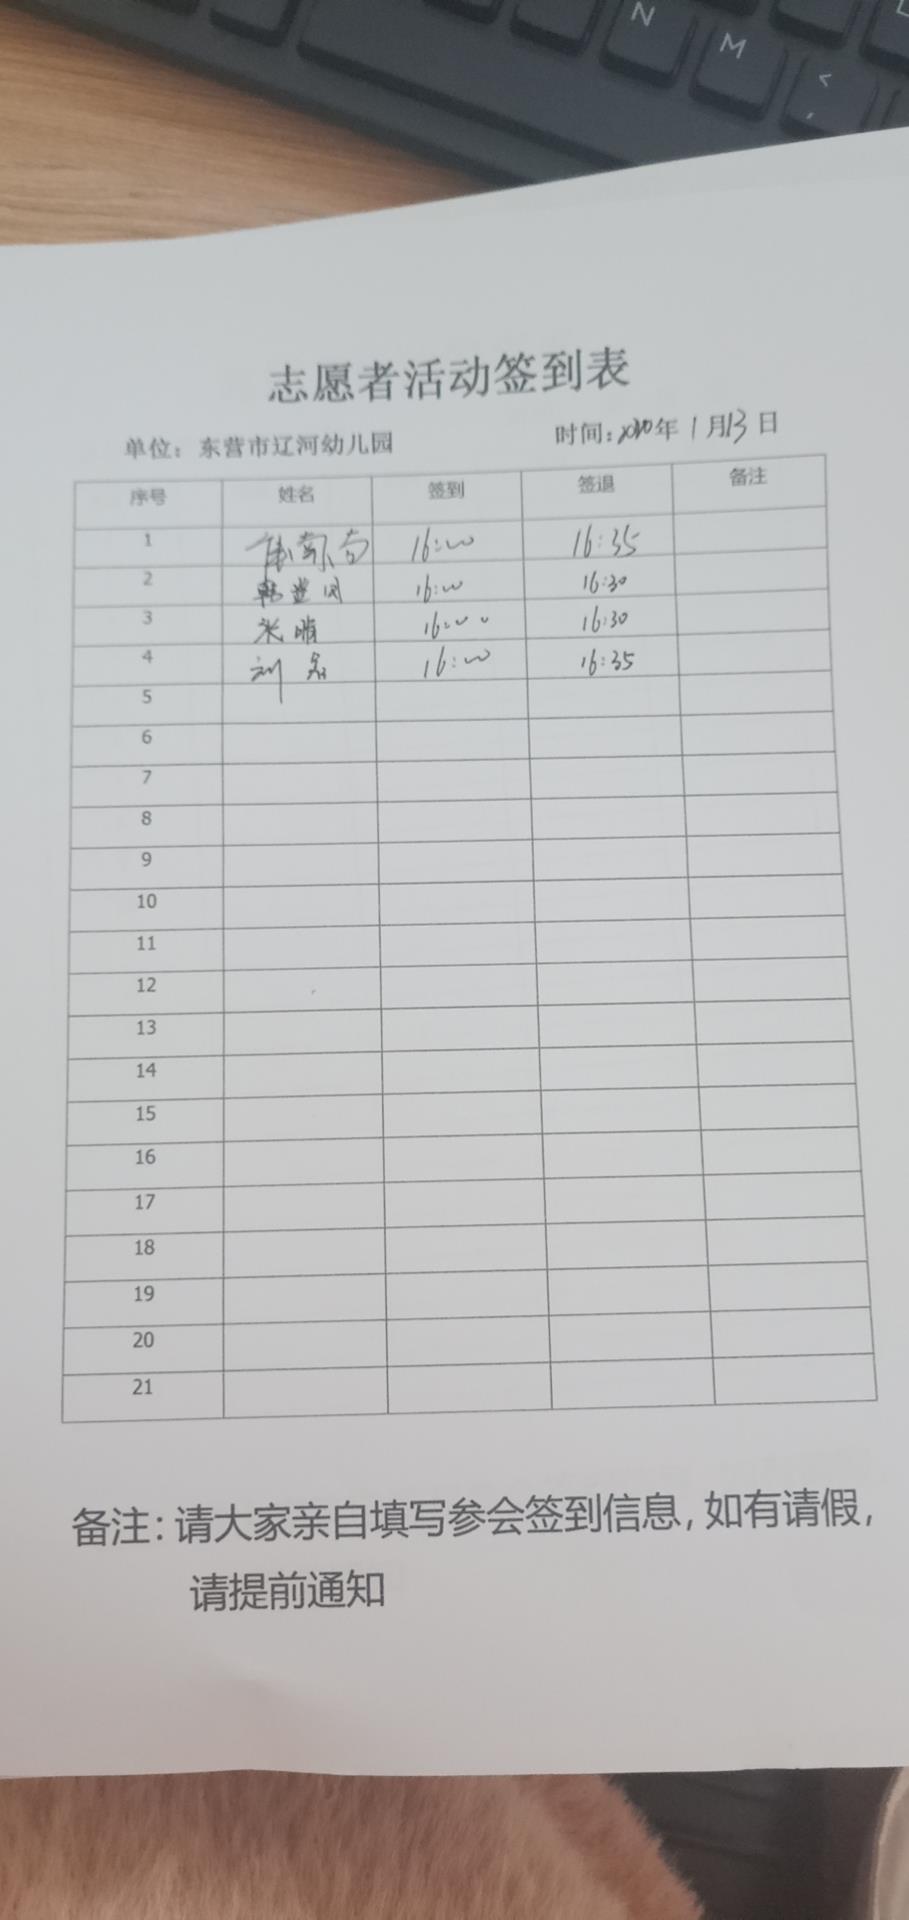 N
M
<
,
志愿者活动签到表
单位：东营市辽河幼儿园 时间：2020年1月13日
序号 姓名 签到 签退 备注
1 16:00 16:35
2 16:00 16:30
3 16:00 16:30
4 刘磊 16:00 16:35
5
6
7
8
9
10
11
12
13
14
15
16
17
18
19
20
21
备注：请大家亲自填写参会签到信息，如有请假，
请提前通知